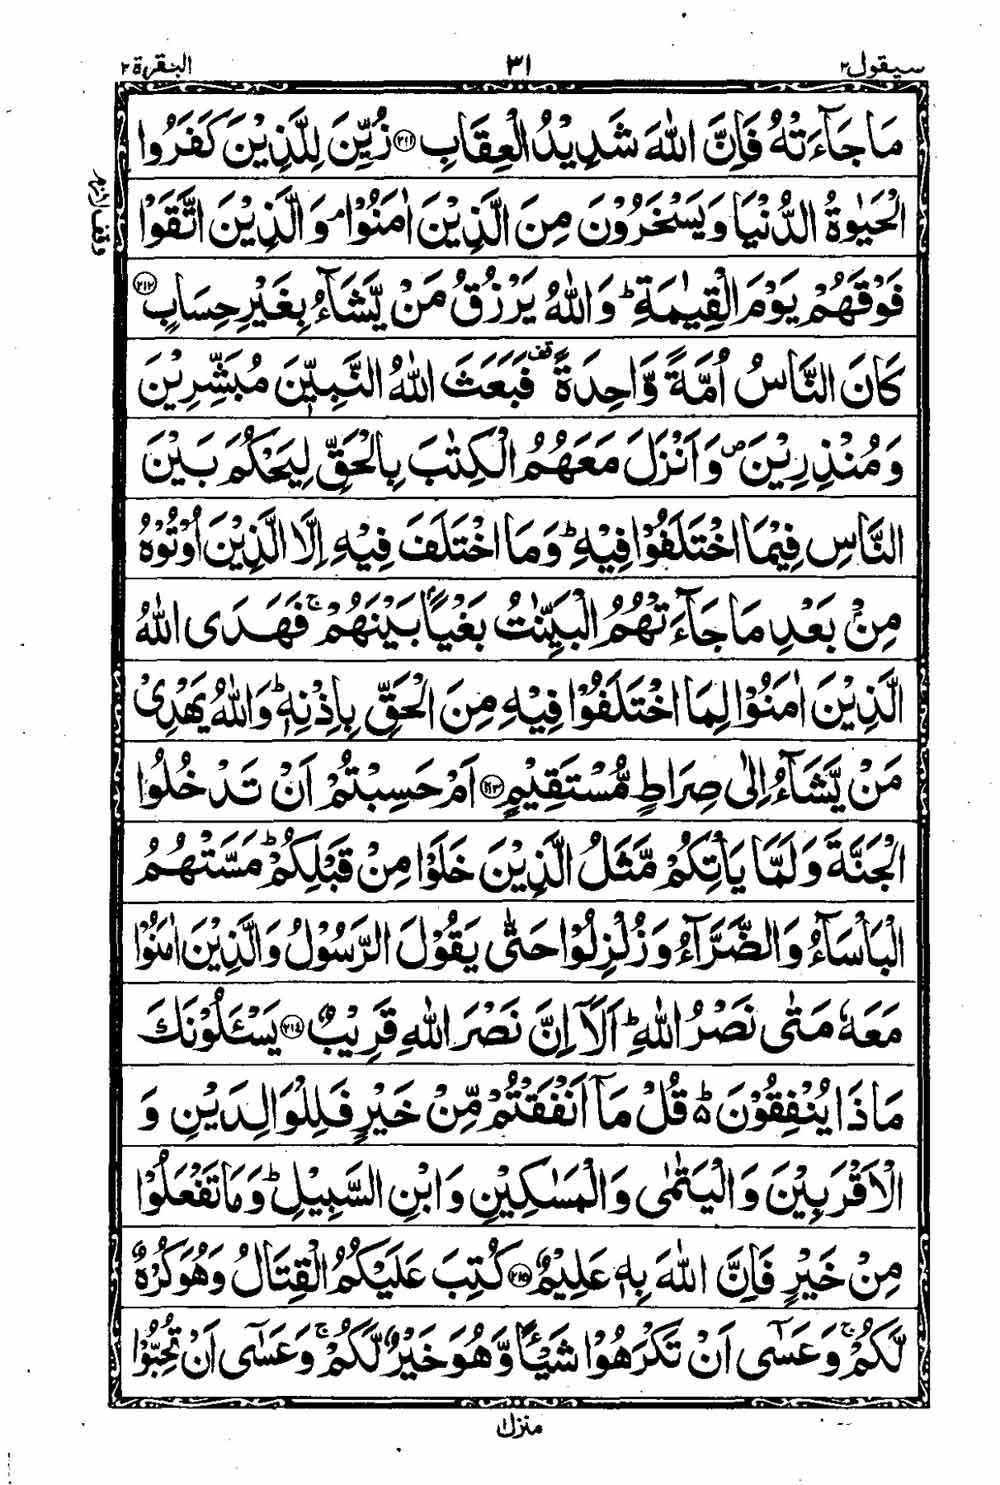 سيقول ٢ ٣١ البقرة ٢
مَا جَآءَتْهُ فَاِنَّ اللّٰهَ شَدِيْدُ الْعِقَابِ ﴿٢١١﴾ زُيِّنَ لِلَّذِيْنَ كَفَرُوا
الْحَيٰوةُ الدُّنْيَا وَيَسْخَرُوْنَ مِنَ الَّذِيْنَ اٰمَنُوْا ۘ وَالَّذِيْنَ اتَّقَوْا
فَوْقَهُمْ يَوْمَ الْقِيٰمَةِ ؕ وَاللّٰهُ يَرْزُقُ مَنْ يَّشَآءُ بِغَيْرِ حِسَابٍ ﴿٢١٢﴾
كَانَ النَّاسُ اُمَّةً وَّاحِدَةً قف فَبَعَثَ اللّٰهُ النَّبِيّٖنَ مُبَشِّرِيْنَ
وَمُنْذِرِيْنَ ص وَاَنْزَلَ مَعَهُمُ الْكِتٰبَ بِالْحَقِّ لِيَحْكُمَ بَيْنَ
النَّاسِ فِيْمَا اخْتَلَفُوْا فِيْهِ ؕ وَمَا اخْتَلَفَ فِيْهِ اِلَّا الَّذِيْنَ اُوْتُوْهُ
مِنْۢ بَعْدِ مَا جَآءَتْهُمُ الْبَيِّنٰتُ بَغْيًۢا بَيْنَهُمْ ۚ فَهَدَى اللّٰهُ
الَّذِيْنَ اٰمَنُوْا لِمَا اخْتَلَفُوْا فِيْهِ مِنَ الْحَقِّ بِاِذْنِهٖ ؕ وَاللّٰهُ يَهْدِيْ
مَنْ يَّشَآءُ اِلٰى صِرَاطٍ مُّسْتَقِيْمٍ ﴿٢١٣﴾ اَمْ حَسِبْتُمْ اَنْ تَدْخُلُوا
الْجَنَّةَ وَلَمَّا يَاْتِكُمْ مَّثَلُ الَّذِيْنَ خَلَوْا مِنْ قَبْلِكُمْ ؕ مَسَّتْهُمُ
الْبَاْسَآءُ وَالضَّرَّآءُ وَزُلْزِلُوْا حَتّٰى يَقُوْلَ الرَّسُوْلُ وَالَّذِيْنَ اٰمَنُوْا
مَعَهٗ مَتٰى نَصْرُ اللّٰهِ ؕ اَلَاۤ اِنَّ نَصْرَ اللّٰهِ قَرِيْبٌ ﴿٢١٤﴾ يَسْـَٔلُوْنَكَ
مَاذَا يُنْفِقُوْنَ ؕ قُلْ مَاۤ اَنْفَقْتُمْ مِّنْ خَيْرٍ فَلِلْوَالِدَيْنِ وَ
الْاَقْرَبِيْنَ وَالْيَتٰمٰى وَالْمَسٰكِيْنِ وَابْنِ السَّبِيْلِ ؕ وَمَا تَفْعَلُوْا
مِنْ خَيْرٍ فَاِنَّ اللّٰهَ بِهٖ عَلِيْمٌ ﴿٢١٥﴾ كُتِبَ عَلَيْكُمُ الْقِتَالُ وَهُوَ كُرْهٌ
لَّكُمْ ۚ وَعَسٰۤى اَنْ تَكْرَهُوْا شَيْـًٔا وَّهُوَ خَيْرٌ لَّكُمْ ۚ وَعَسٰۤى اَنْ تُحِبُّوْا
وقف لازم
منزل ١